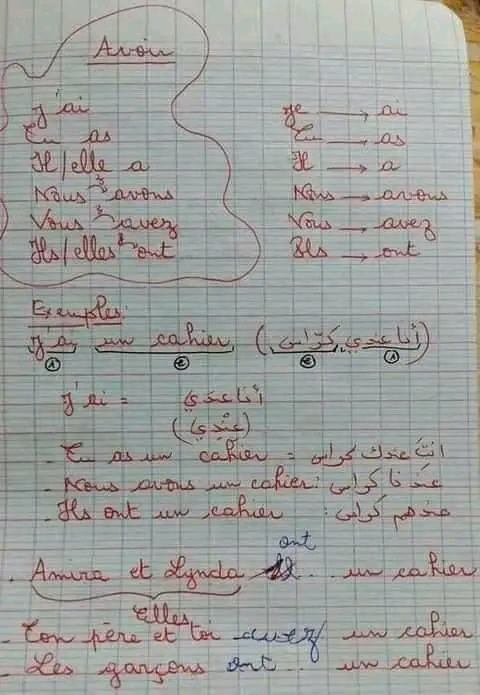 Avoir
J'ai
Tu as
Il/elle a
Nous avons
Vous avez
Ils/elles ont
Je → ai
Tu → as
Il → a
Nous → avons
Vous → avez
Ils → ont
Exemples:
J'ai un cahier (أنا عندي كرّاس)
1 2 2 1
J'ai = أنا عندي
(عِنْدِي)
- Tu as un cahier = انتَ عندك كراس
- Nous avons un cahier: عندنا كراس
- Ils ont un cahier : عندهم كراس
ont
. Amira et Lynda .. un cahier
Elles
- Ton père et toi avez un cahier
- Les garçons ont .. un cahier